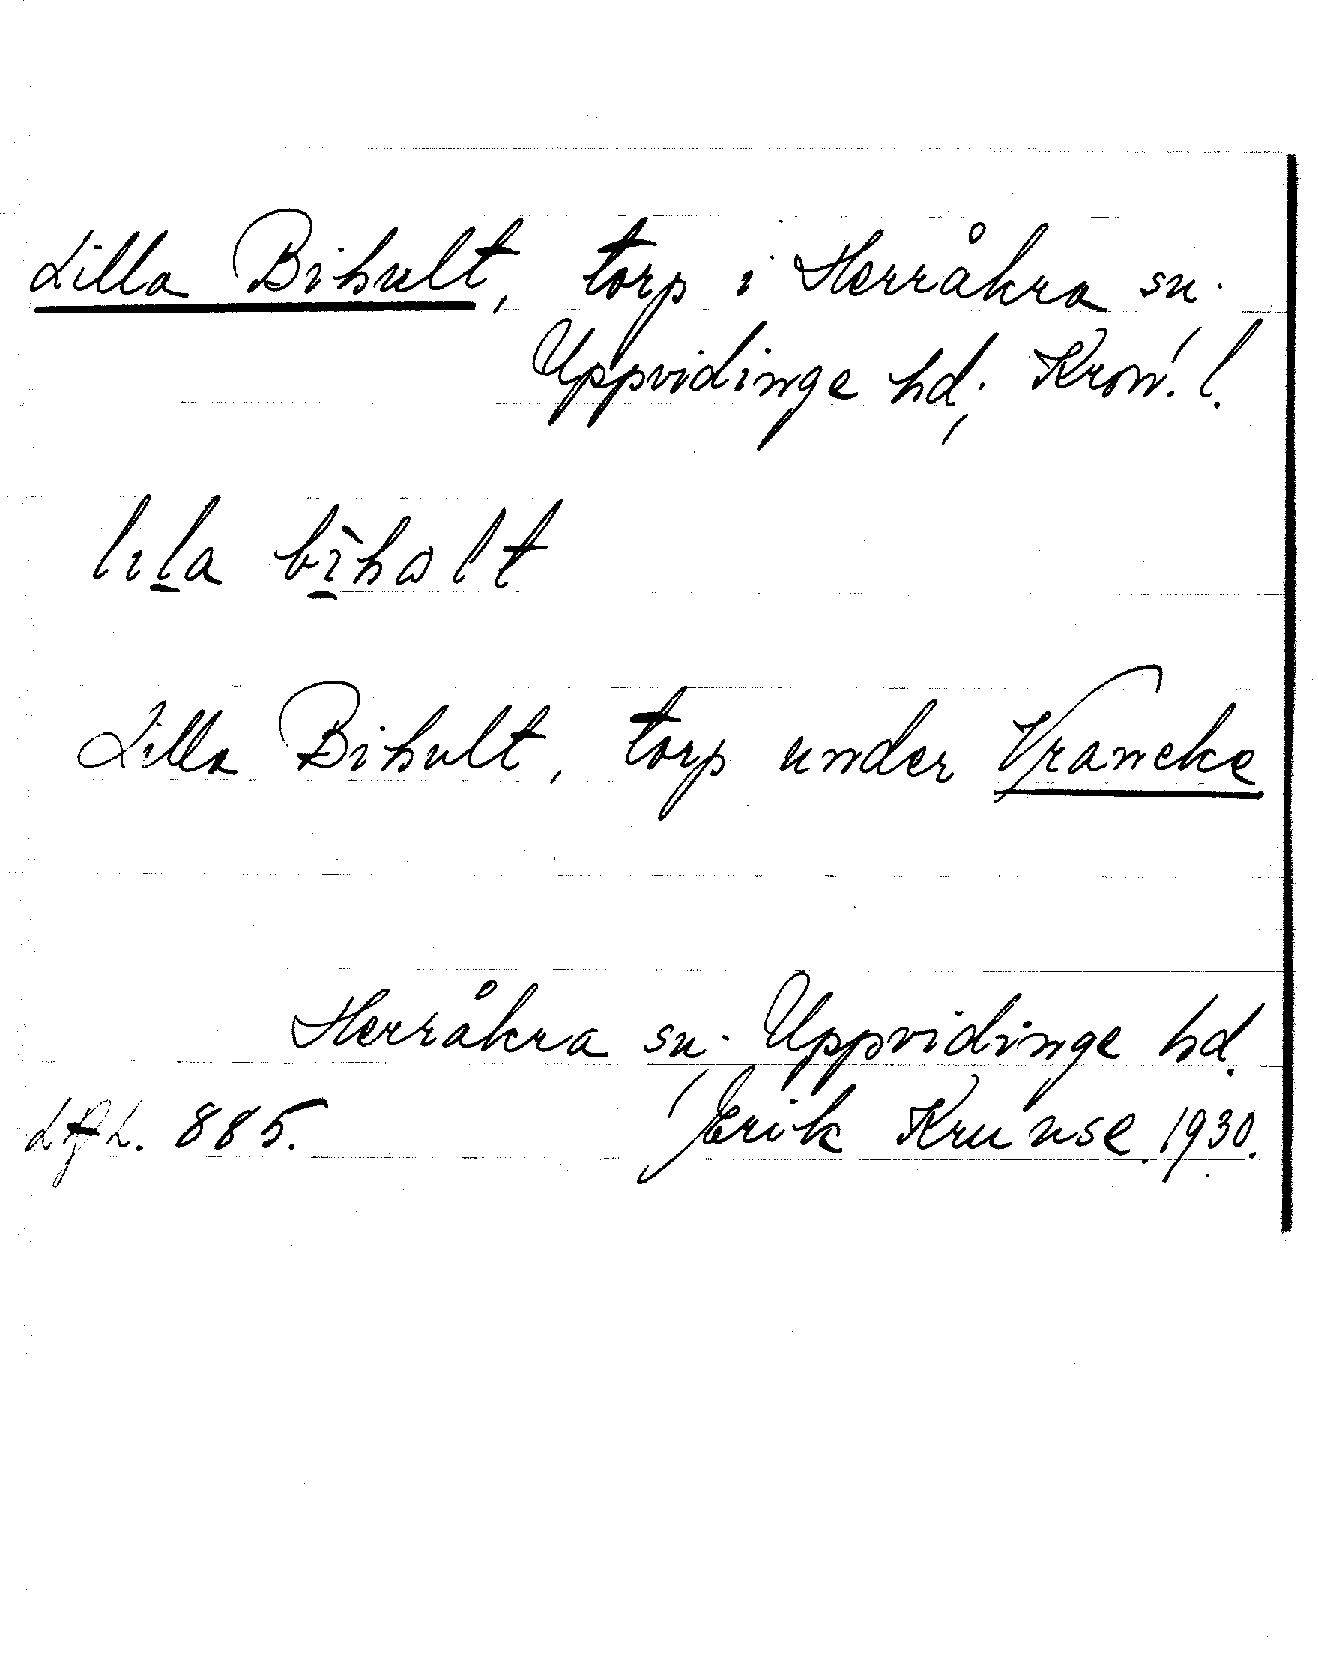 Lilla Bihult, torp i Herråkra sn.
Uppvidinge hd; Kron. l.
lıla bìhɷlt
Lilla Bihult, torp under Vrancke
Herråkra sn. Uppvidinge hd.
885. Erik Kruuse. 1930.